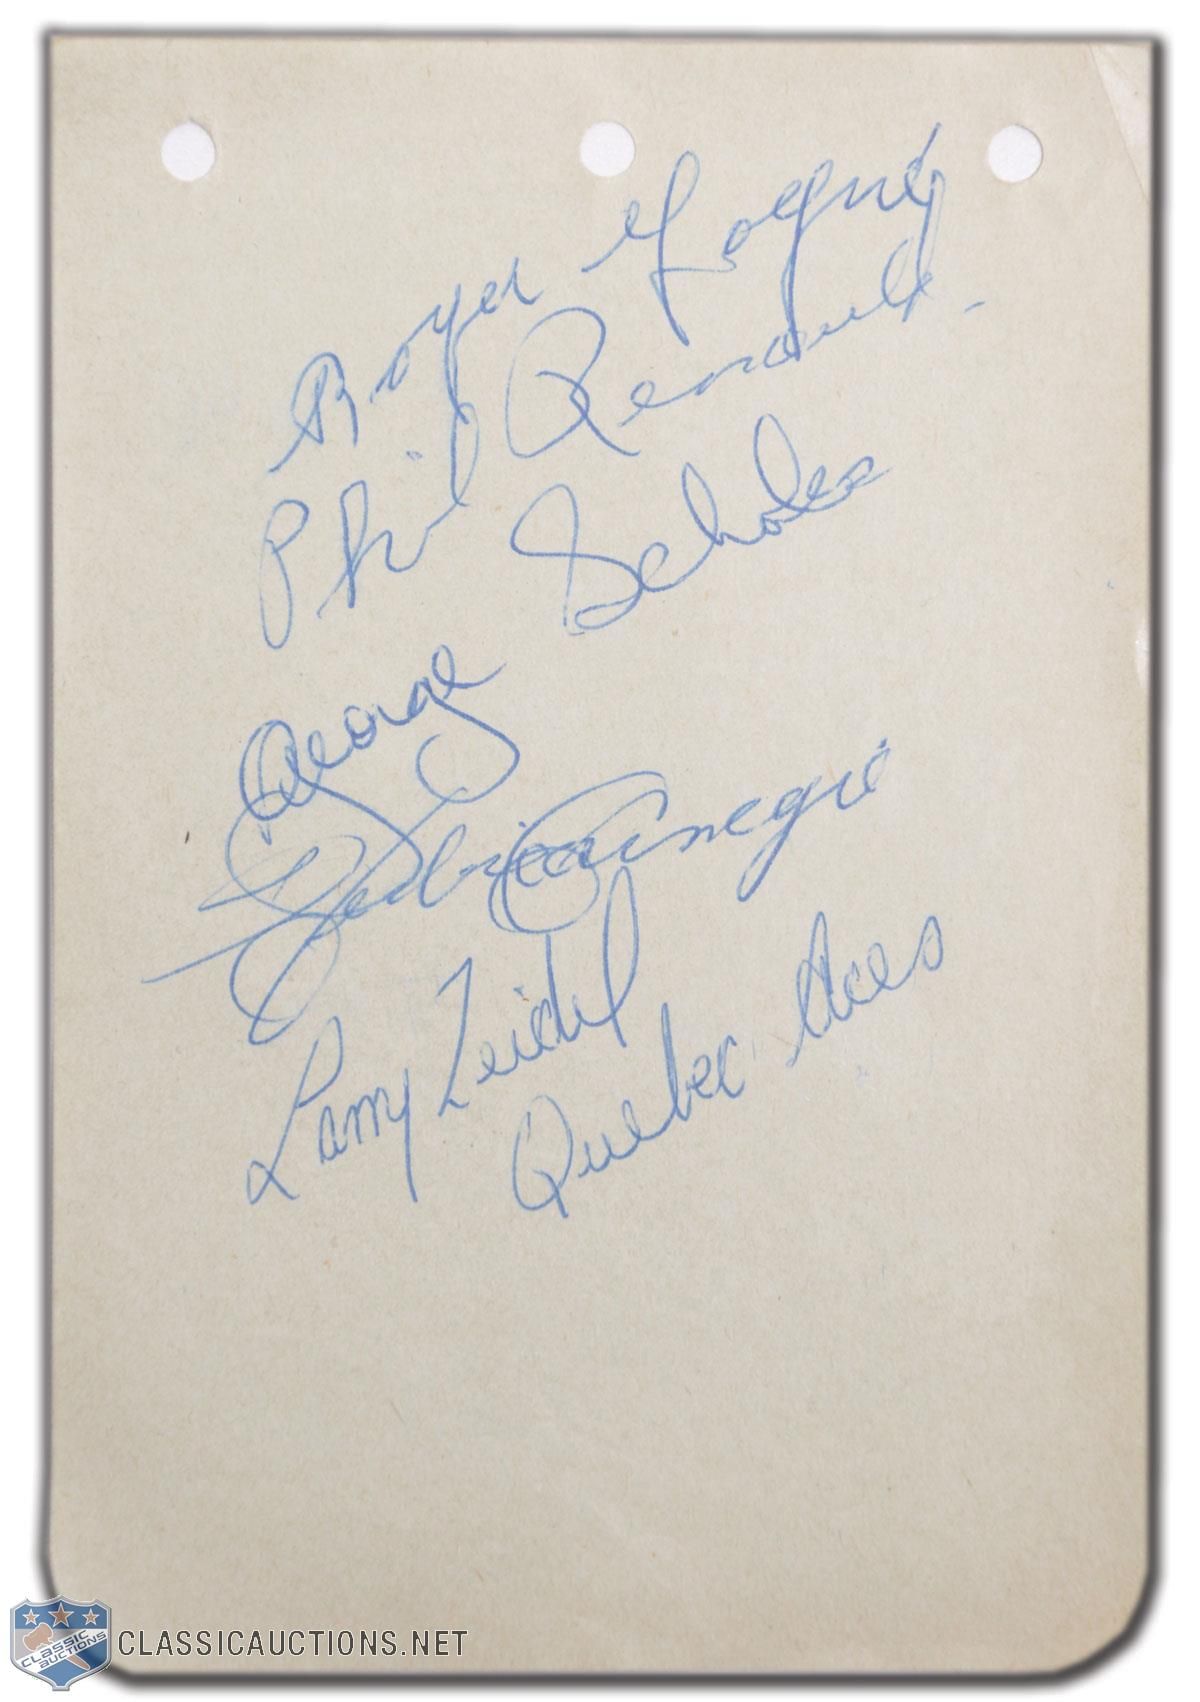 Roger Gagné
Phil Renault.
George Scholes
Herbie Carnegie
Larry Zeidel
Quebec Aces
CLASSIC AUCTIONS
CLASSICAUCTIONS.NET